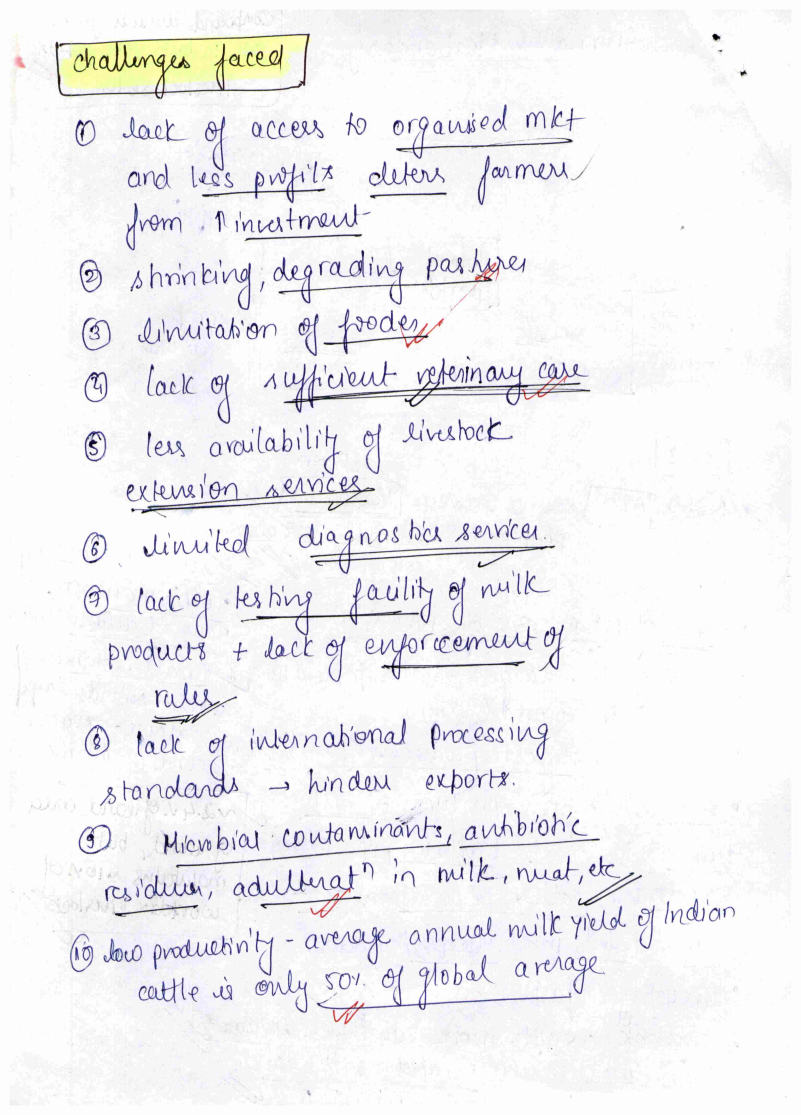 challenges faced
① lack of access to organised mkt
and less profits deters farmers
from ↑ investment
② shrinking, degrading pastures
③ limitation of fooder
④ lack of sufficient veterinary care
⑤ less availability of livestock
extension services
⑥ limited diagnostics services.
⑦ lack of testing facility of milk
products + lack of enforcement of
rules
⑧ lack of international processing
standards → hinders exports.
⑨ Microbial contaminants, antibiotic
residues, adulteratⁿ in milk, meat, etc
⑩ low productivity - average annual milk yield of Indian
cattle is only 50% of global average